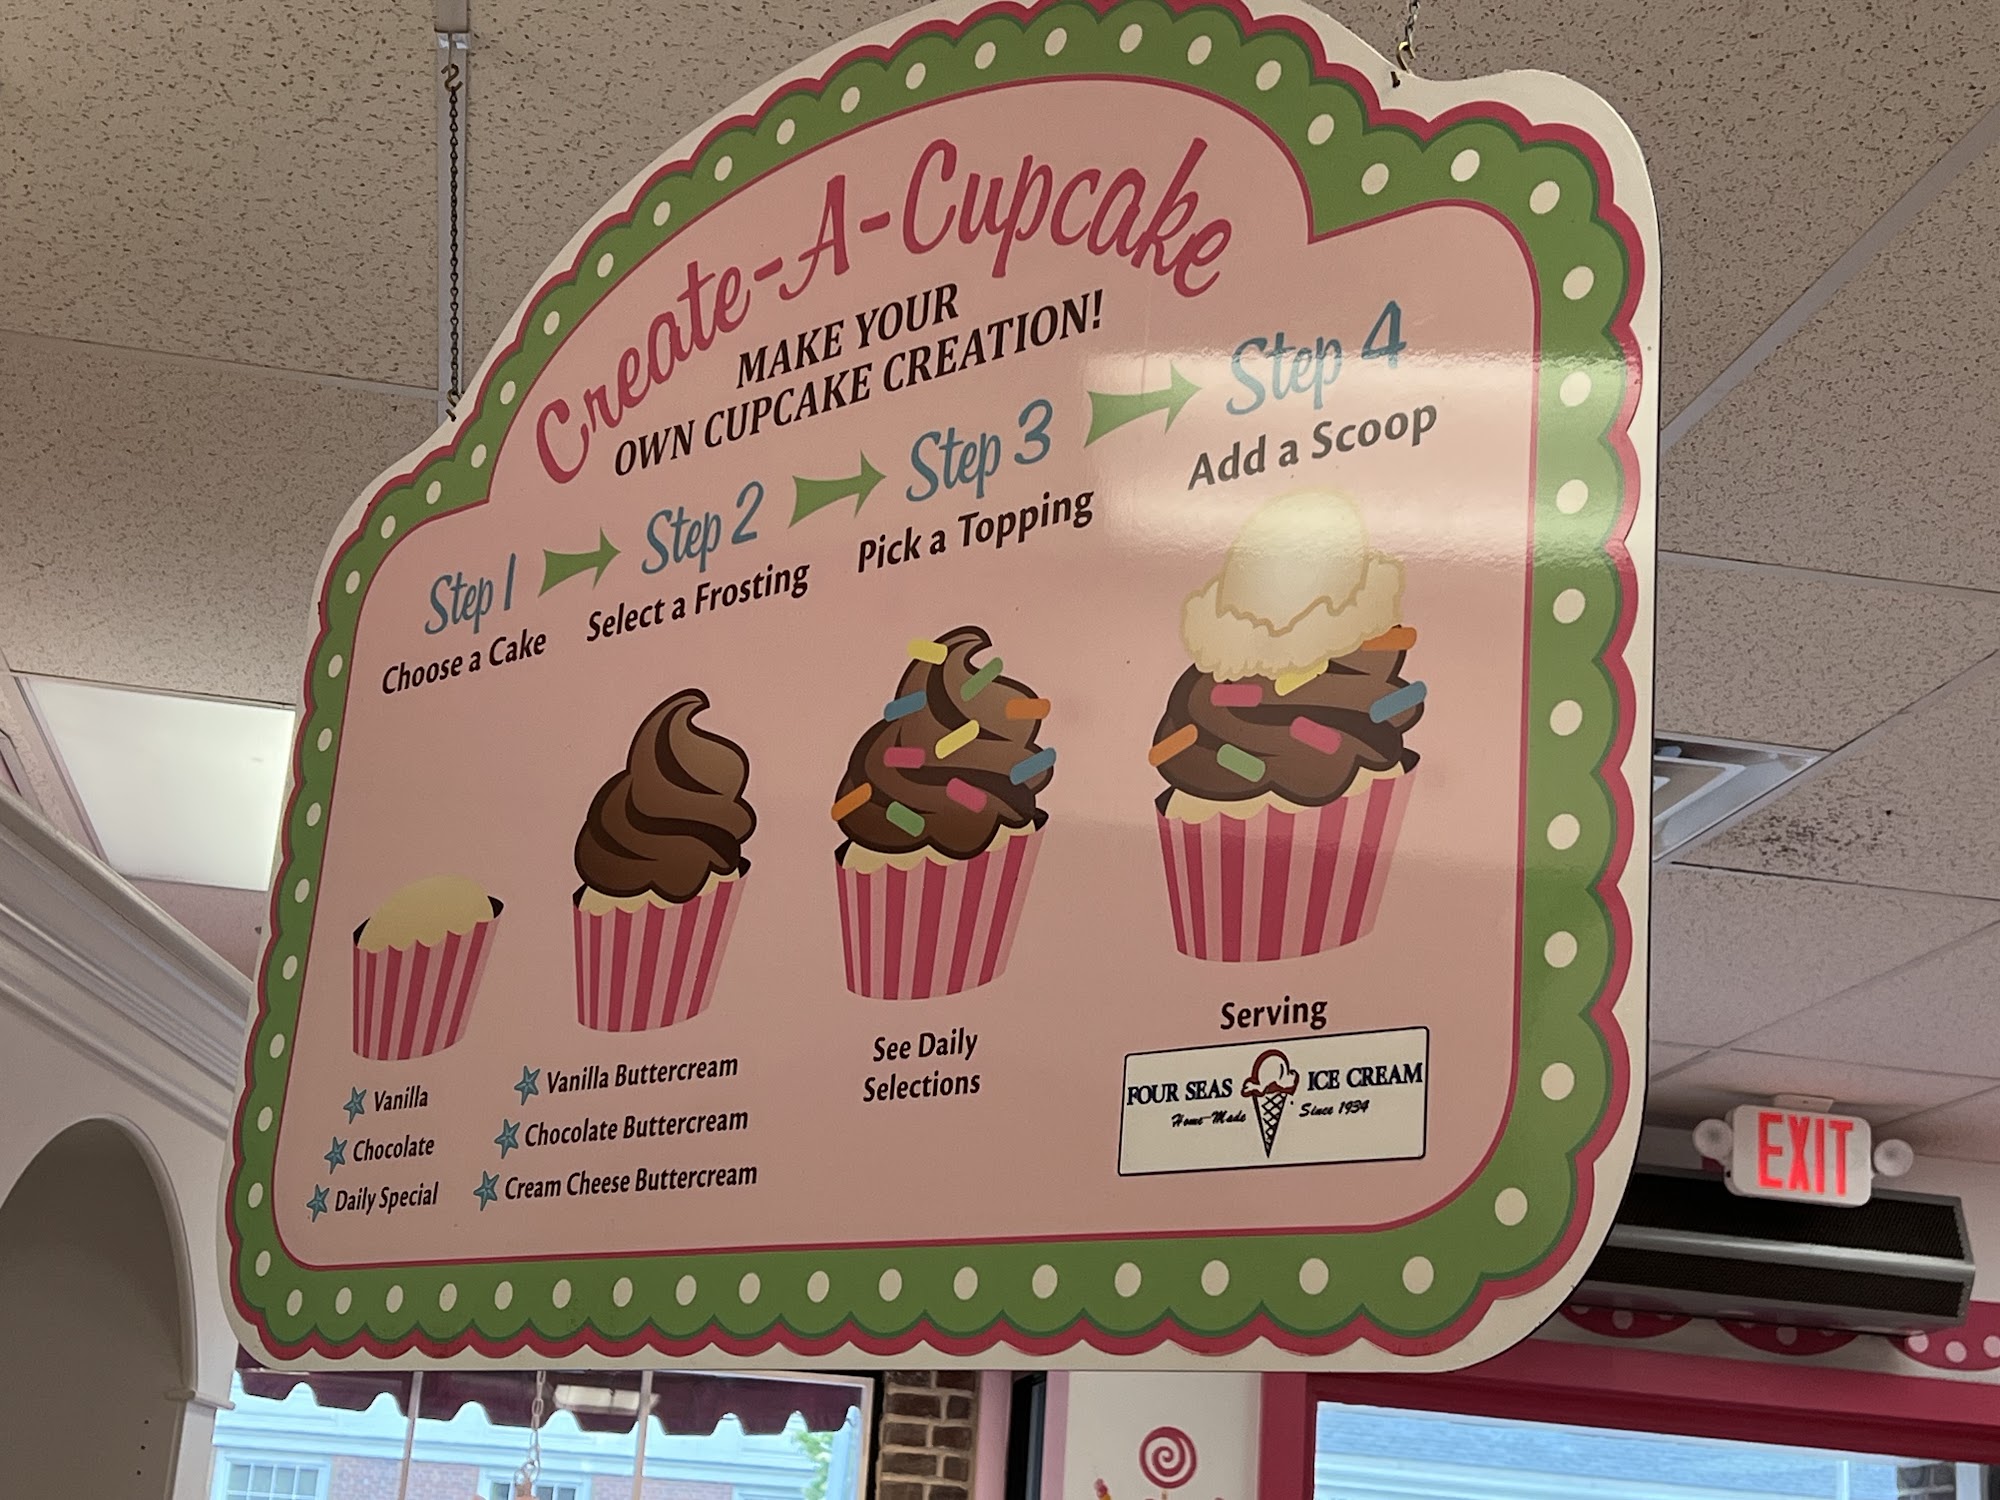 Create-A-Cupcake
MAKE YOUR
OWN CUPCAKE CREATION!
Step 1
Choose a Cake
Vanilla
Chocolate
Daily Special
Step 2
Select a Frosting
Vanilla Buttercream
Chocolate Buttercream
Cream Cheese Buttercream
Step 3
Pick a Topping
See Daily
Selections
Step 4
Add a Scoop
Serving
FOUR SEAS ICE CREAM
Home-Made Since 1934
EXIT